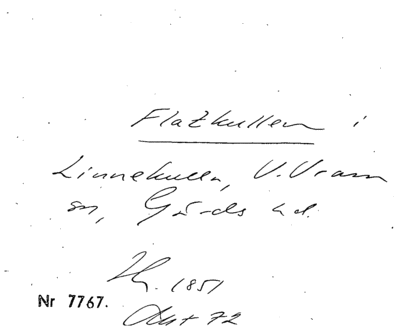 Flatkullen i
Linnekulla, V. Vram
sn, Gärds hd.
1851
Nr 7767.
72